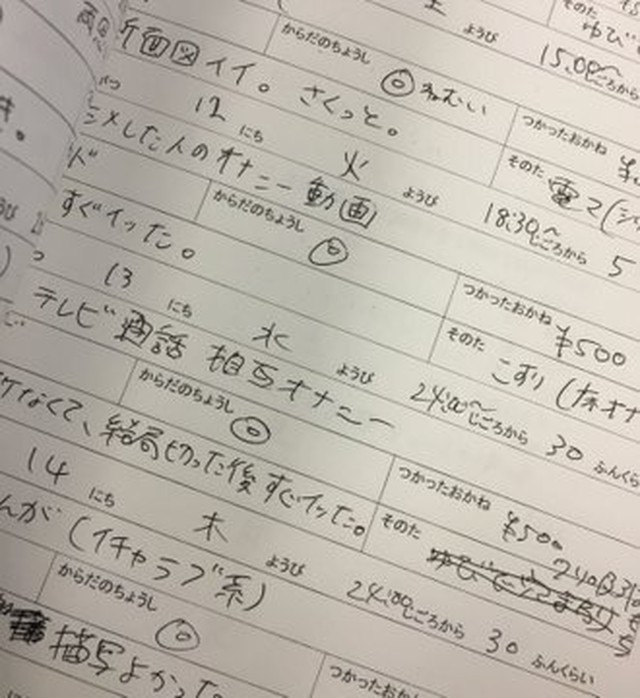 土 ようび 15:00〜
ゆび
からだのちょうし ◎ ねむい
断面図イイ。さくっと。
つかったおかね
12 にち 火 ようび 18:30〜 じごろから 5
そのた 電マ(
した人のオナニー動画
からだのちょうし ◎
すぐイッた。
つかったおかね ¥500
13 にち 水 ようび 24:00〜 じごろから 30 ふんくらい
そのた こすり(床オナ
テレビ通話 相互オナニー
からだのちょうし ◎
イケなくて、結局切った後すぐイッた。
つかったおかね ¥500
14 にち 木 ようび 24:00 じごろから 30 ふんくらい
そのた
んが(イチャラブ系)
からだのちょうし ◎
描写よかった
つかったおかね